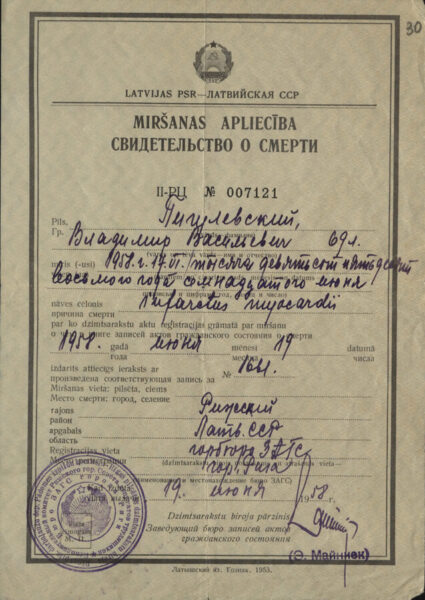 30
LATVIJAS PSR—ЛАТВИЙСКАЯ ССР
MIRŠANAS APLIECĪBA
СВИДЕТЕЛЬСТВО О СМЕРТИ
II-РЦ № 007121
Pils.
Гр. Пигулевский,
Владимир Васильевич 69 л.
miris (-usi) 1958. г. 17. VI. тысяча девятьсот пятьдесят
восьмого года семнадцатого июня
nāves cēlonis Infarctus myocardii
причина смерти
par ko dzimtsarakstu aktu reģistrācijas grāmatā par miršanu
о чем в книге записей актов гражданского состояния о смерти
1958. gadā июня mēnesī 19 datumā
года месяца числа
izdarīts attiecīgs ieraksts ar № 1661.
произведена соответствующая запись за
Miršanas vieta: pilsēta, ciems
Место смерти: город, селение
rajons Рижский
район
apgabals Латв. ССР
область
Reģistrācijas vieta горбюро ЗАГС
гор. Рига
(наименование и местонахождение бюро ЗАГС)
19. июня 1958 г.
М. П.
Dzimtsarakstu biroja pārzinis
Заведующий бюро записей актов
гражданского состояния
(Э. Майниек)
Латышский яз. Гознак. 1953.